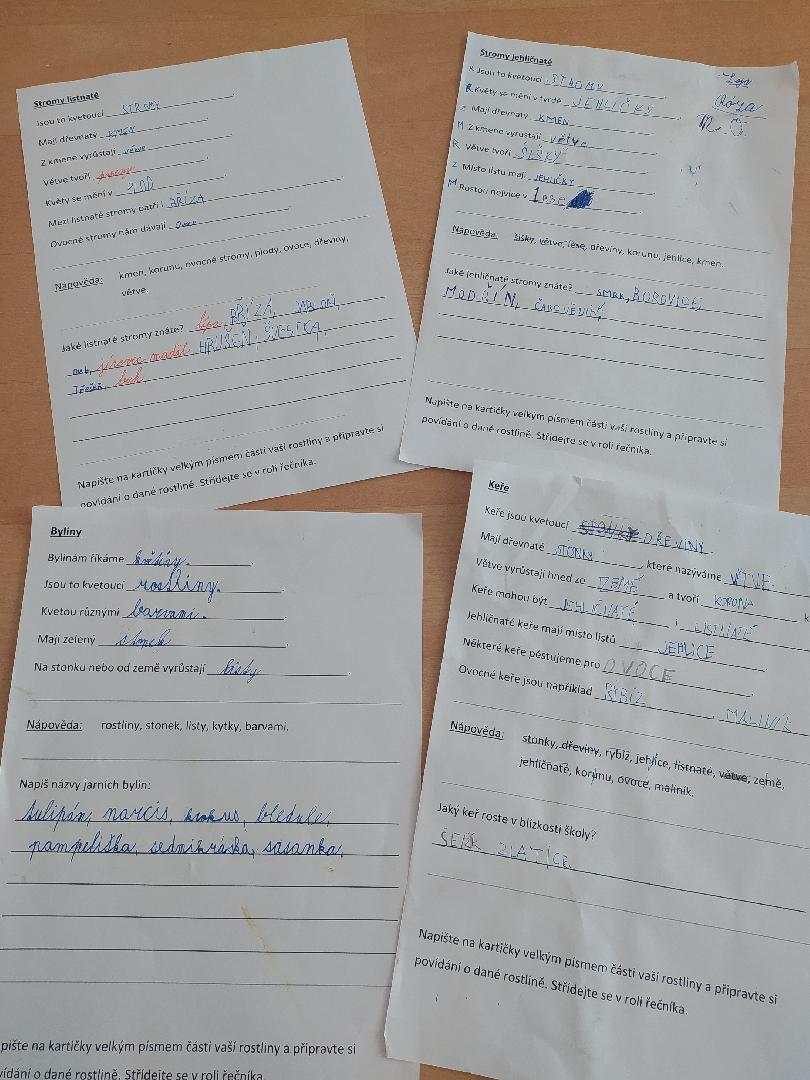 Stromy listnaté
Jsou to kvetoucí STROMY
Mají dřevnatý KMEN
Z kmene vyrůstají větve
Větve tvoří
Květy se mění v
Mezi listnaté stromy patří i BŘÍZA
Ovocné stromy nám dávají
Nápověda: kmen, korunu, ovocné stromy, plody, ovoce, dřeviny,
větve.
Jaké listnaté stromy znáte? lípa, BŘÍZA,
DUB, jírovec maďal HRUŠEŇ, ŠVESTKA,
Třešeň, buk
Napište na kartičky velkým písmem části vaší rostliny a připravte si
povídání o dané rostlině. Střídejte se v roli řečníka.
Stromy jehličnaté
Jsou to kvetoucí STROMY
Květy se mění v tvrdé JEHLIČKY
Mají dřevnatý KMEN
Z kmene vyrůstají větve
Větve tvoří ŠIŠKY
Místo listů mají JEHLIČKY
Rostou nejvíce v lese
Nápověda: šišky, větve, lese, dřeviny, korunu, jehlice, kmen.
Jaké jehličnaté stromy znáte? SMRK, BOROVICE,
MODŘÍN,
Napište na kartičky velkým písmem části vaší rostliny a připravte si
povídání o dané rostlině. Střídejte se v roli řečníka.
Byliny
Bylinám říkáme
Jsou to kvetoucí rostliny.
Kvetou různými barvami.
Mají zelený stonek
Na stonku nebo od země vyrůstají listy
Nápověda: rostliny, stonek, listy, kytky, barvami.
Napiš názvy jarních bylin:
tulipán, narcis, krokus, bledule,
pampeliška, sedmikráska, sasanka,
pište na kartičky velkým písmem části vaší rostliny a připravte si
vídání o dané rostlině. Střídejte se v roli řečníka.
Keře
Keře jsou kvetoucí DŘEVINY
Mají dřevnaté STONKY, které nazýváme VĚTVE.
Větve vyrůstají hned ze ZEMĚ a tvoří KORUNA
Keře mohou být JEHLIČNATÉ i LISTNATÉ
Jehličnaté keře mají místo listů JEHLICE
Některé keře pěstujeme pro OVOCE
Ovocné keře jsou například RYBÍZ, MALINÍK
Nápověda: stonky, dřeviny, rybíz, jehlice, listnaté, větve, země,
jehličnaté, korunu, ovoce, maliník.
Jaký keř roste v blízkosti školy?
KEŘ ZLATICE
Napište na kartičky velkým písmem části vaší rostliny a připravte si
povídání o dané rostlině. Střídejte se v roli řečníka.